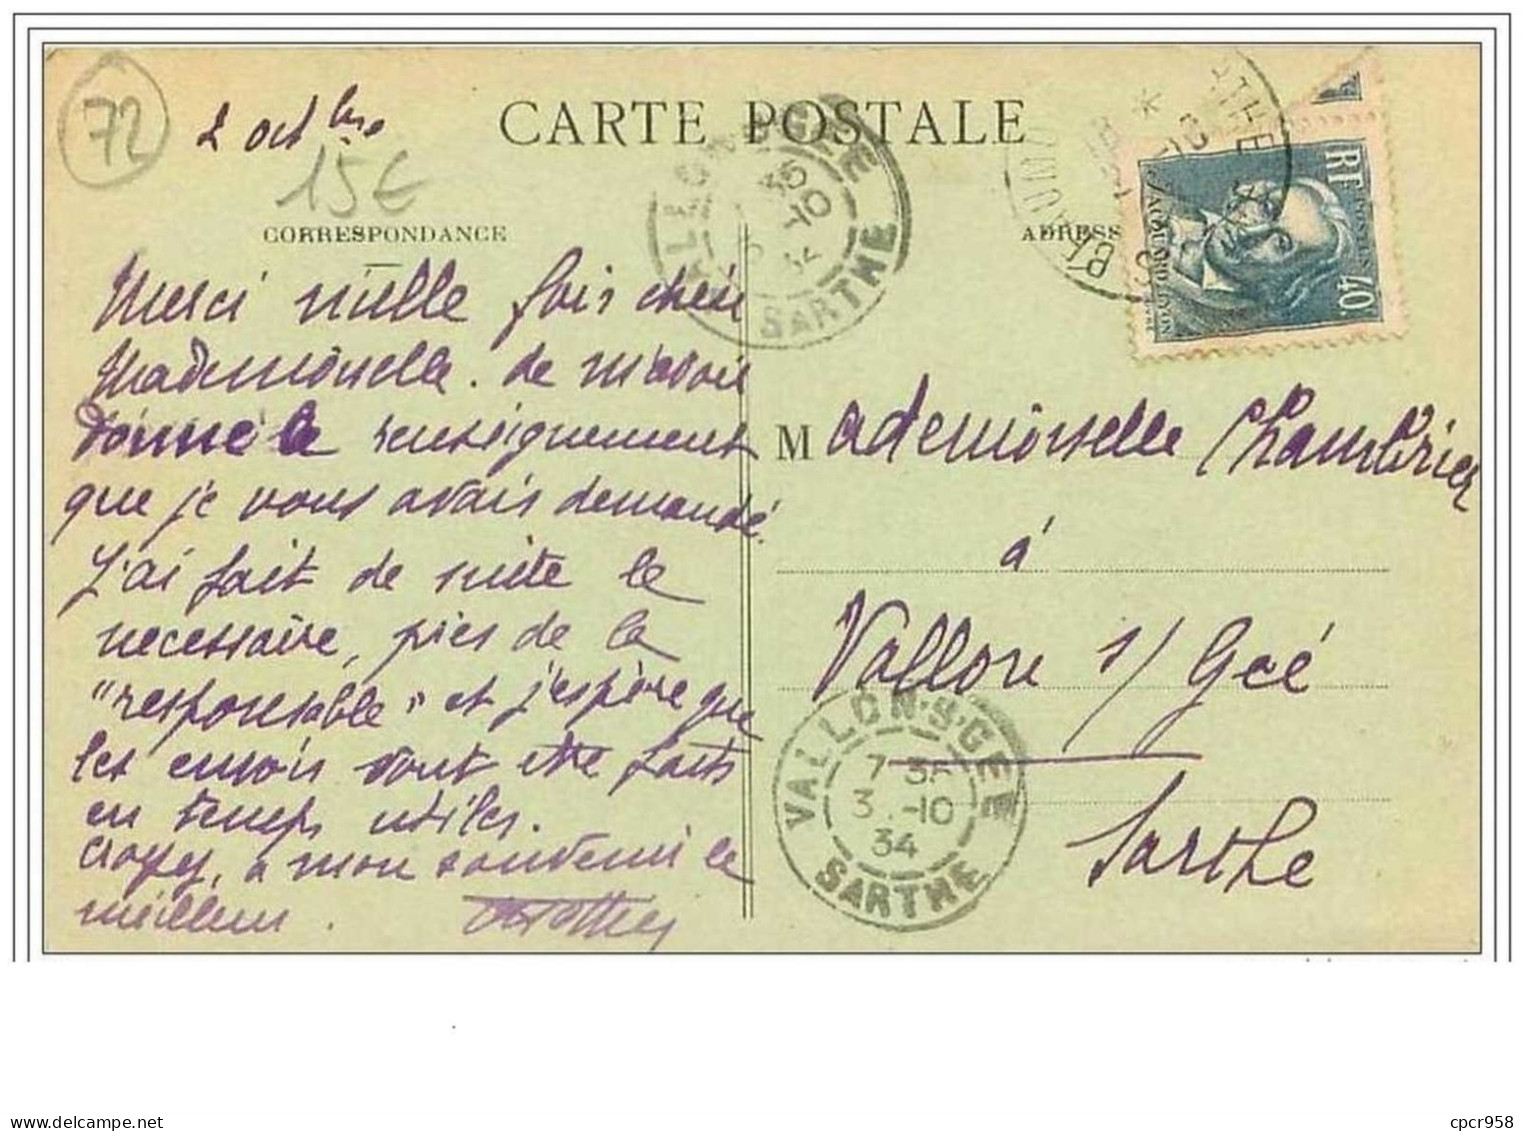 72
2 octbre
15€
CARTE POSTALE
CORRESPONDANCE
ADRESS
RF
POSTES
40c
JACQUARD
VALLON-S-GEE
36
-10
34
SARTHE
Merci mille fois chère
Mademoiselle. de m'avoir
donné le renseignement
que je vous avais demandé.
J'ai fait de suite le
necessaire, près de la
"responsable" et j'espère que
les envois vont etre faits
en temps utiles.
Croyez, a mon souvenir le
meilleur.
Mademoiselle Chambrier
à
Vallon s/ Geé
Sarthe
VALLON-S-GEE
7 35
3.-10
34
SARTHE
cpcr958